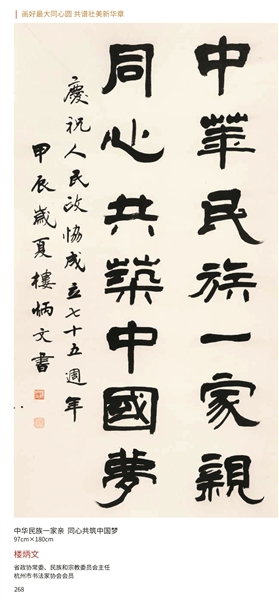 画好最大同心圆 共谱壮美新华章
中华民族一家親
同心共築中國夢
慶祝人民政協成立七十五週年
甲辰歲夏樓炳文書
中华民族一家亲 同心共筑中国梦
97cm×180cm
楼炳文
省政协常委、民族和宗教委员会主任
杭州市书法家协会会员
268